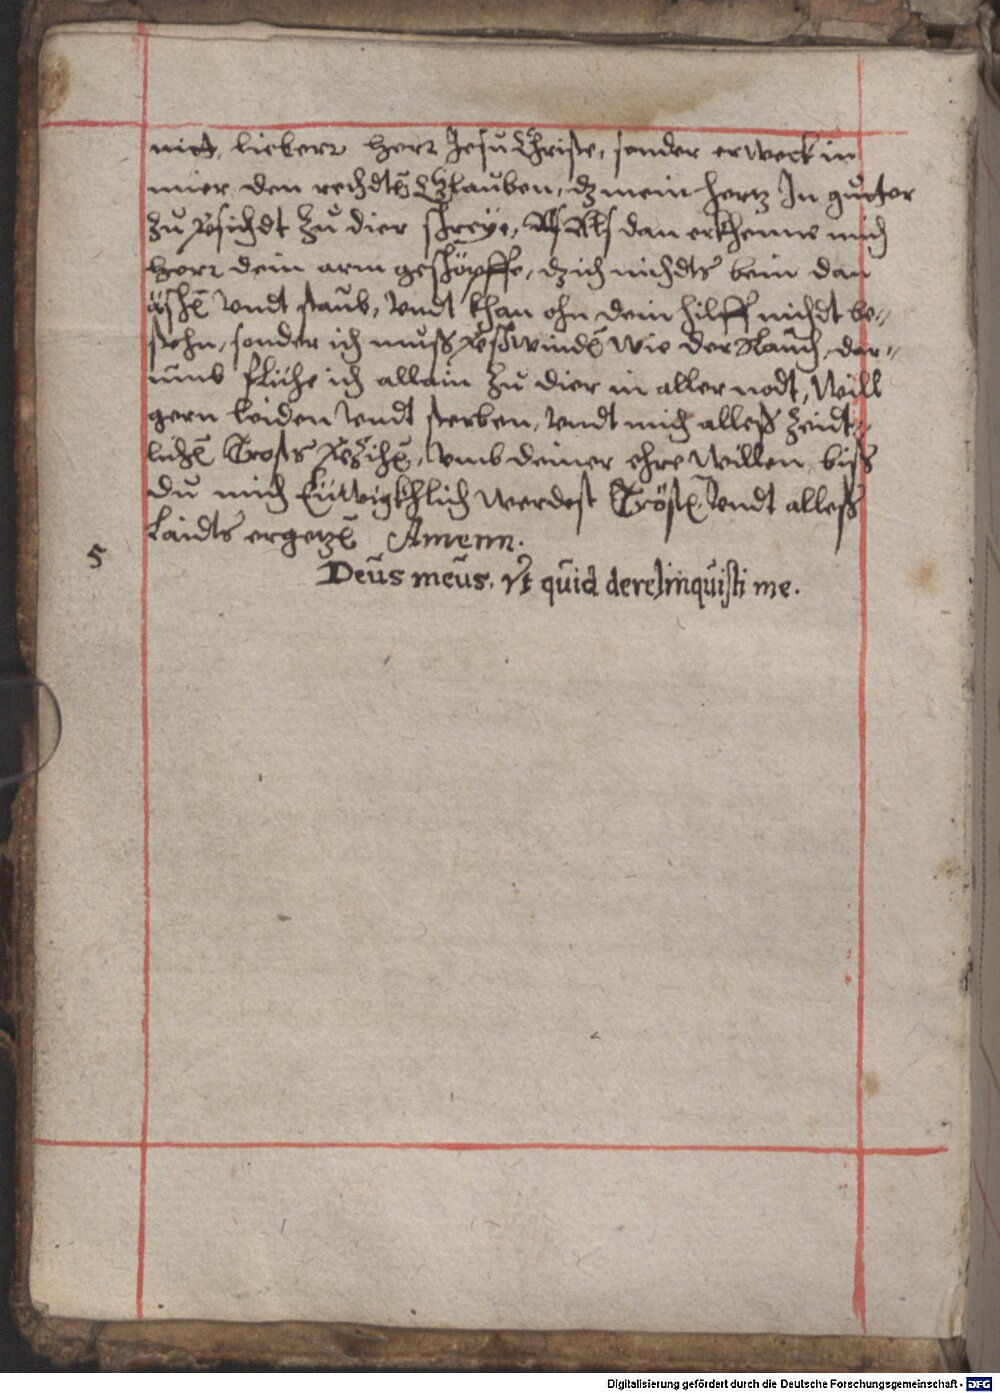 nit, lieberr Herr Jesu Christe, sonder erweck in
mier den rechdtē Glauben, dz mein hertz In gueter
Zuvsichdt Zu dier schreye, dan erkhenne mich
Herr dein arm geschöpffe, dz ich nichdts bein dan
äschē Undt staub, Undt khan ohn dein hilff nichdt be-
stehn, sonder ich muss vschwindē wie der Rauch, dar-
umb fliche ich allain Zu dier in aller nodt, Will
gern leiden Undt sterben, Undt mich alless Zeidt-
lichē Trosts vZeihē, Umb deiner ehre willen, biss
du mich Ewigkhlich werdest Tröstē, Undt alless
Laidts ergetzē Amenn.
5
Deus meus. Vt quid derelinquisti me.
Digitalisierung gefördert durch die Deutsche Forschungsgemeinschaft - DFG